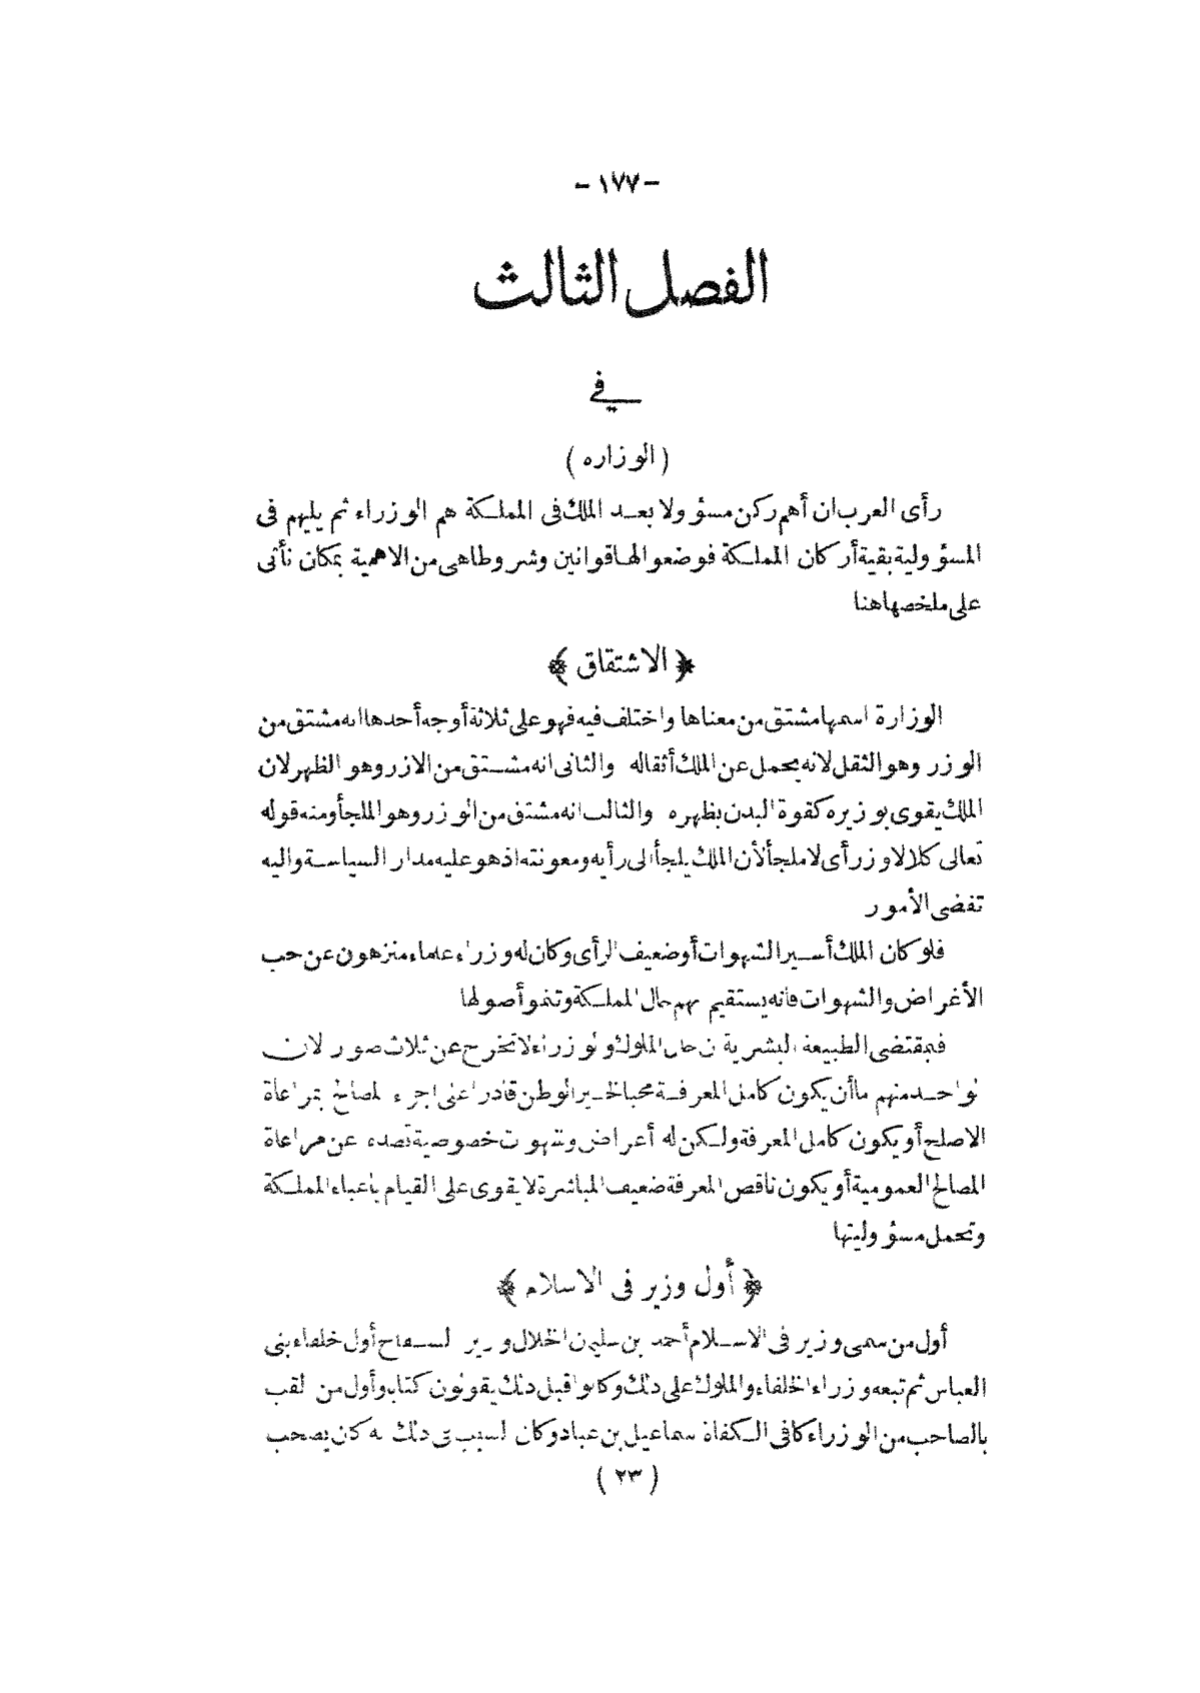 - ١٧٧ -
الفصل الثالث
في
( الوزاره )
رأى العرب ان أهم ركن مسؤولا بعد الملك فى المملكة هم الوزراء ثم يليهم فى
المسؤولية بقية أركان المملكة فوضعوا لها قوانين وشروطا هى من الاهمية بمكان نأتى
على ملخصها هنا
﴿ الاشتقاق ﴾
الوزارة اسمها مشتق من معناها واختلف فيه فهو على ثلاثة أوجه أحدها انه مشتق من
الوزر وهو الثقل لانه يحمل عن الملك أثقاله والثانى انه مشتق من الازر وهو الظهر لان
الملك يقوى بوزيره كقوة البدن بظهره والثالث انه مشتق من الوزر وهو الملجأ ومنه قوله
تعالى كلا لا وزر أى لا ملجأ لأن الملك يلجأ الى رأيه ومعونته اذ هو عليه مدار السياسة واليه
تفضى الأمور
فلو كان الملك أسير الشهوات أو ضعيف الرأى وكان له وزراء علماء منزهون عن حب
الأغراض والشهوات فانه يستقيم بهم حال المملكة وتنمو أصولها
فبمقتضى الطبيعة البشرية ان حال الملوك والوزراء لا تخرج عن ثلاث صور لان
الواحد منهم اما أن يكون كامل المعرفة محبا لخير الوطن قادرا على اجراء المصالح بمراعاة
الاصلح أو يكون كامل المعرفة ولكن له أغراض وشهوات خصوصية تصده عن مراعاة
المصالح العمومية أو يكون ناقص المعرفة ضعيف المباشرة لا يقوى على القيام باعباء المملكة
وتحمل مسؤوليتها
﴿ أول وزير فى الاسلام ﴾
أول من سمى وزير فى الاسلام أحمد بن سليمن الخلال وزير السفاح أول خلفاء بنى
العباس ثم تبعه وزراء الخلفاء والملوك على ذلك وكانوا قبل ذلك يقولون كتاب وأول من لقب
بالصاحب من الوزراء كافى الكفاة اسماعيل بن عباد وكان السبب فى ذلك انه كان يصحب
( ٢٣ )